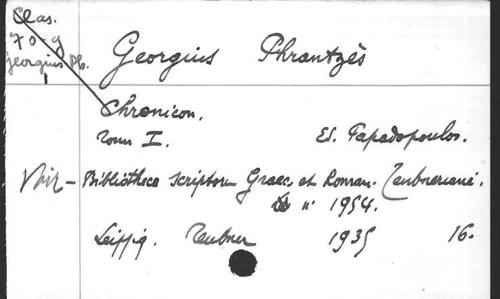 Clas.
70-g
Georgius Ph.
1
Georgius Phrantzès
Chronicon.
Tom I. Ed. Papadopoulos.
Voir - Bibliotheca Scriptorum Graec. et Roman. Teubneriana.
" 1954.
Leipzig. Teubner 1935 16.